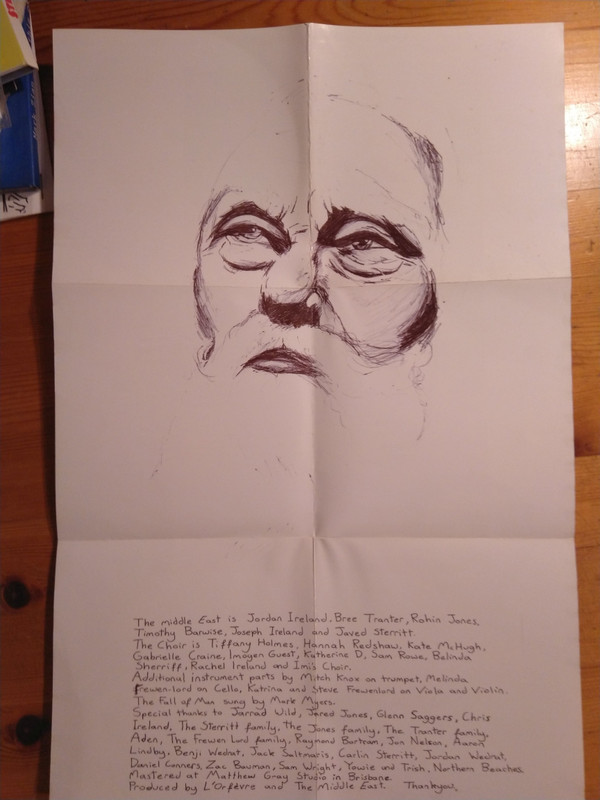 The middle East is Jordan Ireland, Bree Tranter, Rohin Jones,
Timothy Barwise, Joseph Ireland and Javed Sterritt.
The Choir is Tiffany Holmes, Hannah Redshaw, Kate McHugh,
Gabrielle Craine, Imogen Guest, Katherine D, Sam Rowe, Belinda
Sherriff, Rachel Ireland and Imi's Choir.
Additional instrument parts by Mitch Knox on trumpet, Melinda
Frewen-lord on Cello, Katrina and Steve Frewenlord on Viola and Violin.
The Fall of Man sung by Mark Myers.
Special thanks to Jarrad Wild, Jered Jones, Glenn Saggers, Chris
Ireland, The Sterritt family, The Jones family, The Tranter family,
Aden, The Frewen Lord family, Raymond Bartram, Jon Nelson, Aaron
Lindby, Benji Wednat, Jack Saltmiris, Carlin Sterritt, Jordan Wednat,
Daniel Conners, Zac Bauman, Sam Wright, Yowie and Trish, Northern Beaches.
Mastered at Matthew Gray Studio in Brisbane.
Produced by L'Orfèvre and The Middle East. Thankyou.